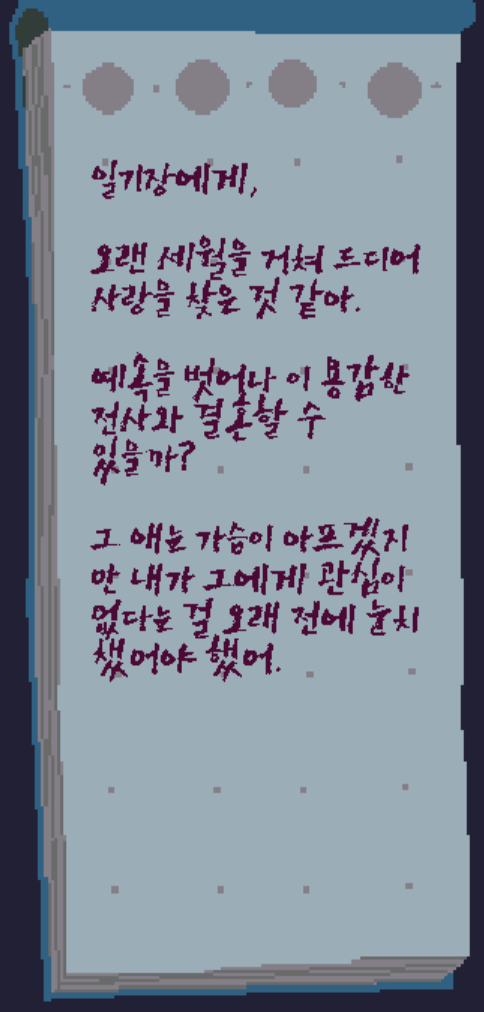 일기장에게,
오랜 세월을 거쳐 드디어
사랑을 찾은 것 같아.
예속을 벗어나 이 용감한
전사와 결혼할 수
있을까?
그 애는 가슴이 아프겠지
만 내가 그에게 관심이
없다는 걸 오래 전에 눈치
챘어야 했어.